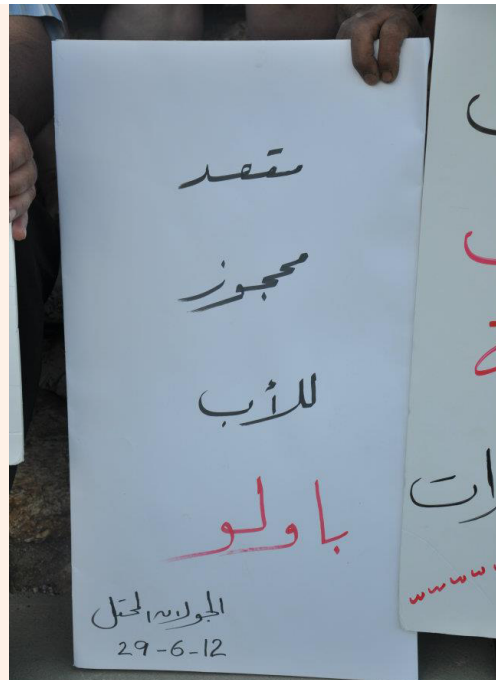 مقعد
محجوز
للأب
باولو
الجولان المحتل
29-6-12